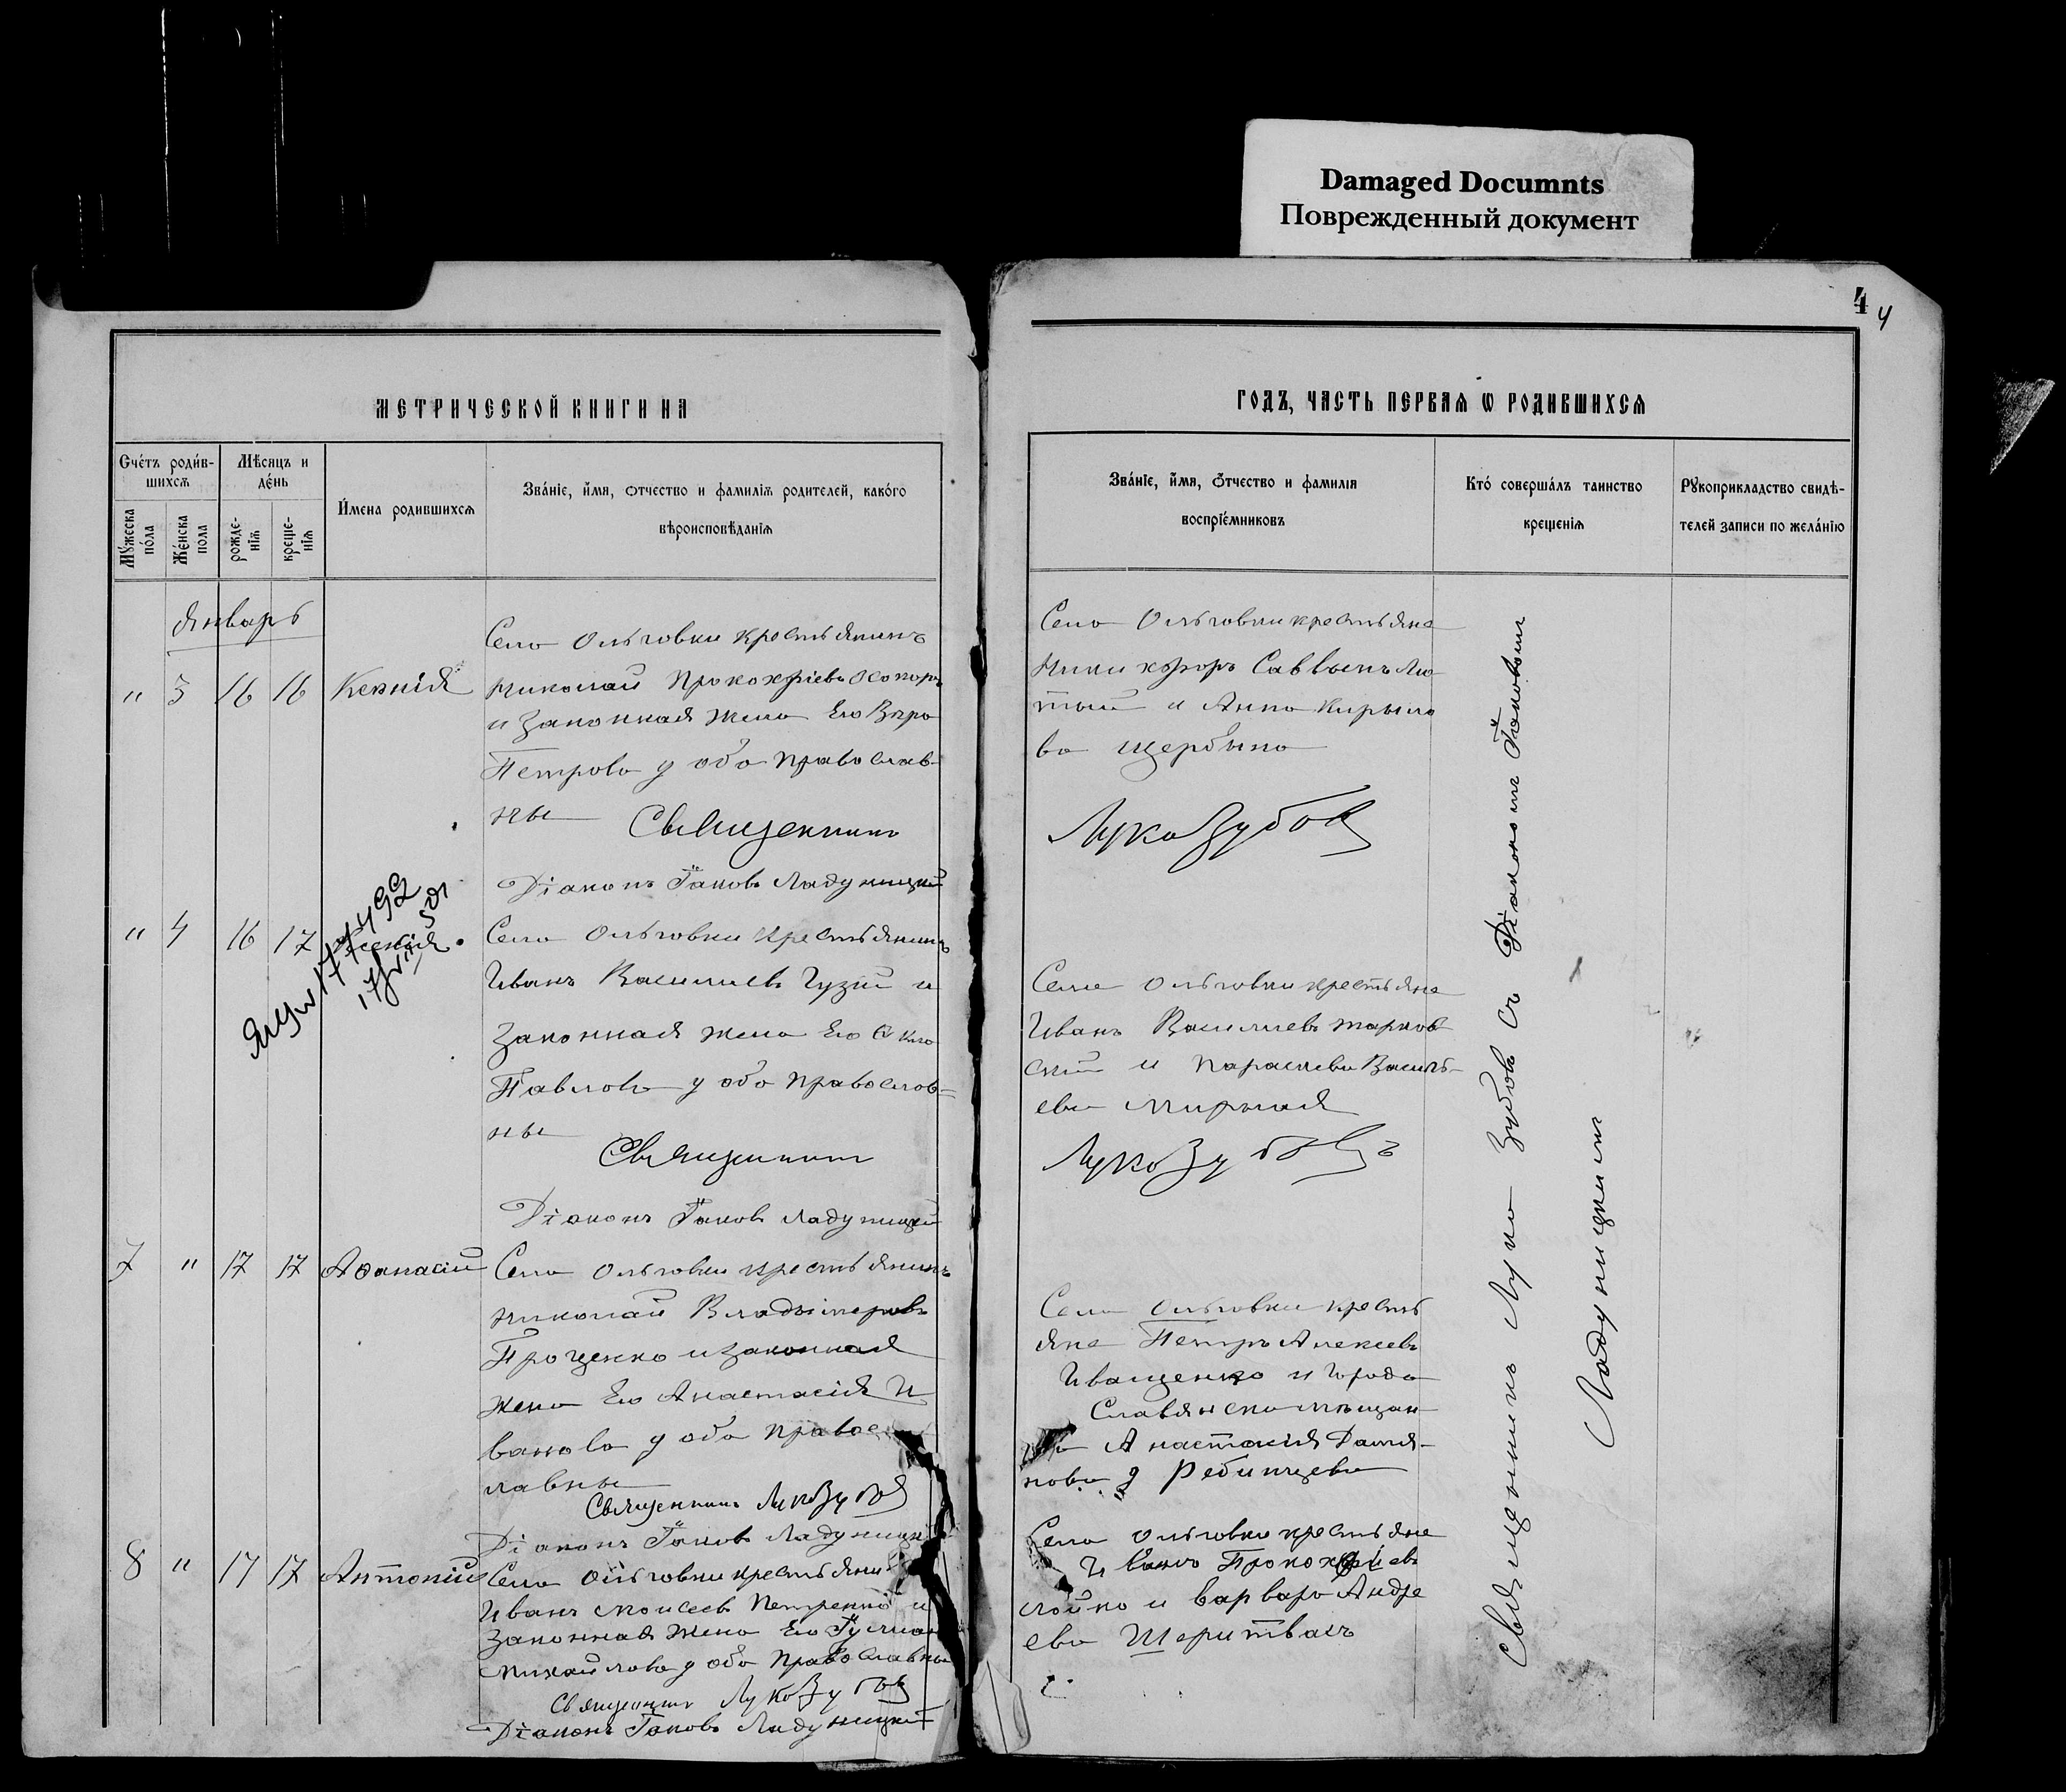 Damaged Documnts
Поврежденный документ
4 4
МЕТРИЧЕСКОЙ КНИГИ НА
ГОДЪ, ЧАСТЬ ПЕРВАЯ Ѡ РОДИВШИХСЯ
Счетъ родив-
шихся
Мѣсяцъ и
день
Мужеска
пола
Женска
пола
рожде-
нія
креще-
нія
Имена родившихся
Званіе, имя, отчество и фамилія родителей, какого
вѣроисповѣданія
Званіе, имя, отчество и фамилія
воспріемниковъ
Кто совершалъ таинство
крещенія
Рукоприкладство свидѣ-
телей записи по желанію
Январь
" 3 16 16 Ксенія
Села Ольговки крестьянинъ
Николай Прокофіевъ
и законная жена Его Вѣра
Петрова оба Православ-
ны
Священникъ
Діаконъ Іаковъ Ладуницкій
Села Ольговки крестьяне
Никифоръ Саввинъ Лю-
тый и Анна Кирило
ва Щербина
Лука Зубов
" 4 16 17 Ксенія
Села Ольговки крестьянинъ
Иванъ Василиевъ Гузій и
законная жена Его
Павлова оба Православ=
ны
Священникъ
Діаконъ Іаковъ Ладуницкій
Села Ольговки крестьяне
Иванъ Василиевъ Марков
скій и Параскева Василь-
ева Мирная
Лука Зубовъ
7 " 17 17 Афанасій
Села Ольговки крестьянинъ
Николай Владиміровъ
Проценко и законная
жена Его Анастасія И
ванова оба Правос
лавны
Священникъ Лука Зубов
Діаконъ Іаковъ Ладуницкій
Села Ольговки кресть
яне Петръ Алексеевъ
Иващенко и города
Славянска мѣщан
Анастасія Дамія-
нова Ребинцева
8 " 17 17 Антоній
Села Ольговки крестьянин
Иванъ Моисеевъ Петренко и
законная жена Его Іуліан
Михайлова оба Православны
Священникъ Лука Зубов
Діаконъ Іаковъ Ладуницкій
Села Ольговки крестьяне
Иванъ Прокофіевъ
Лойко и Варвара Андре
ева
Священникъ Лука Зубовъ съ Діакономъ Іаковомъ
Ладуницкимъ